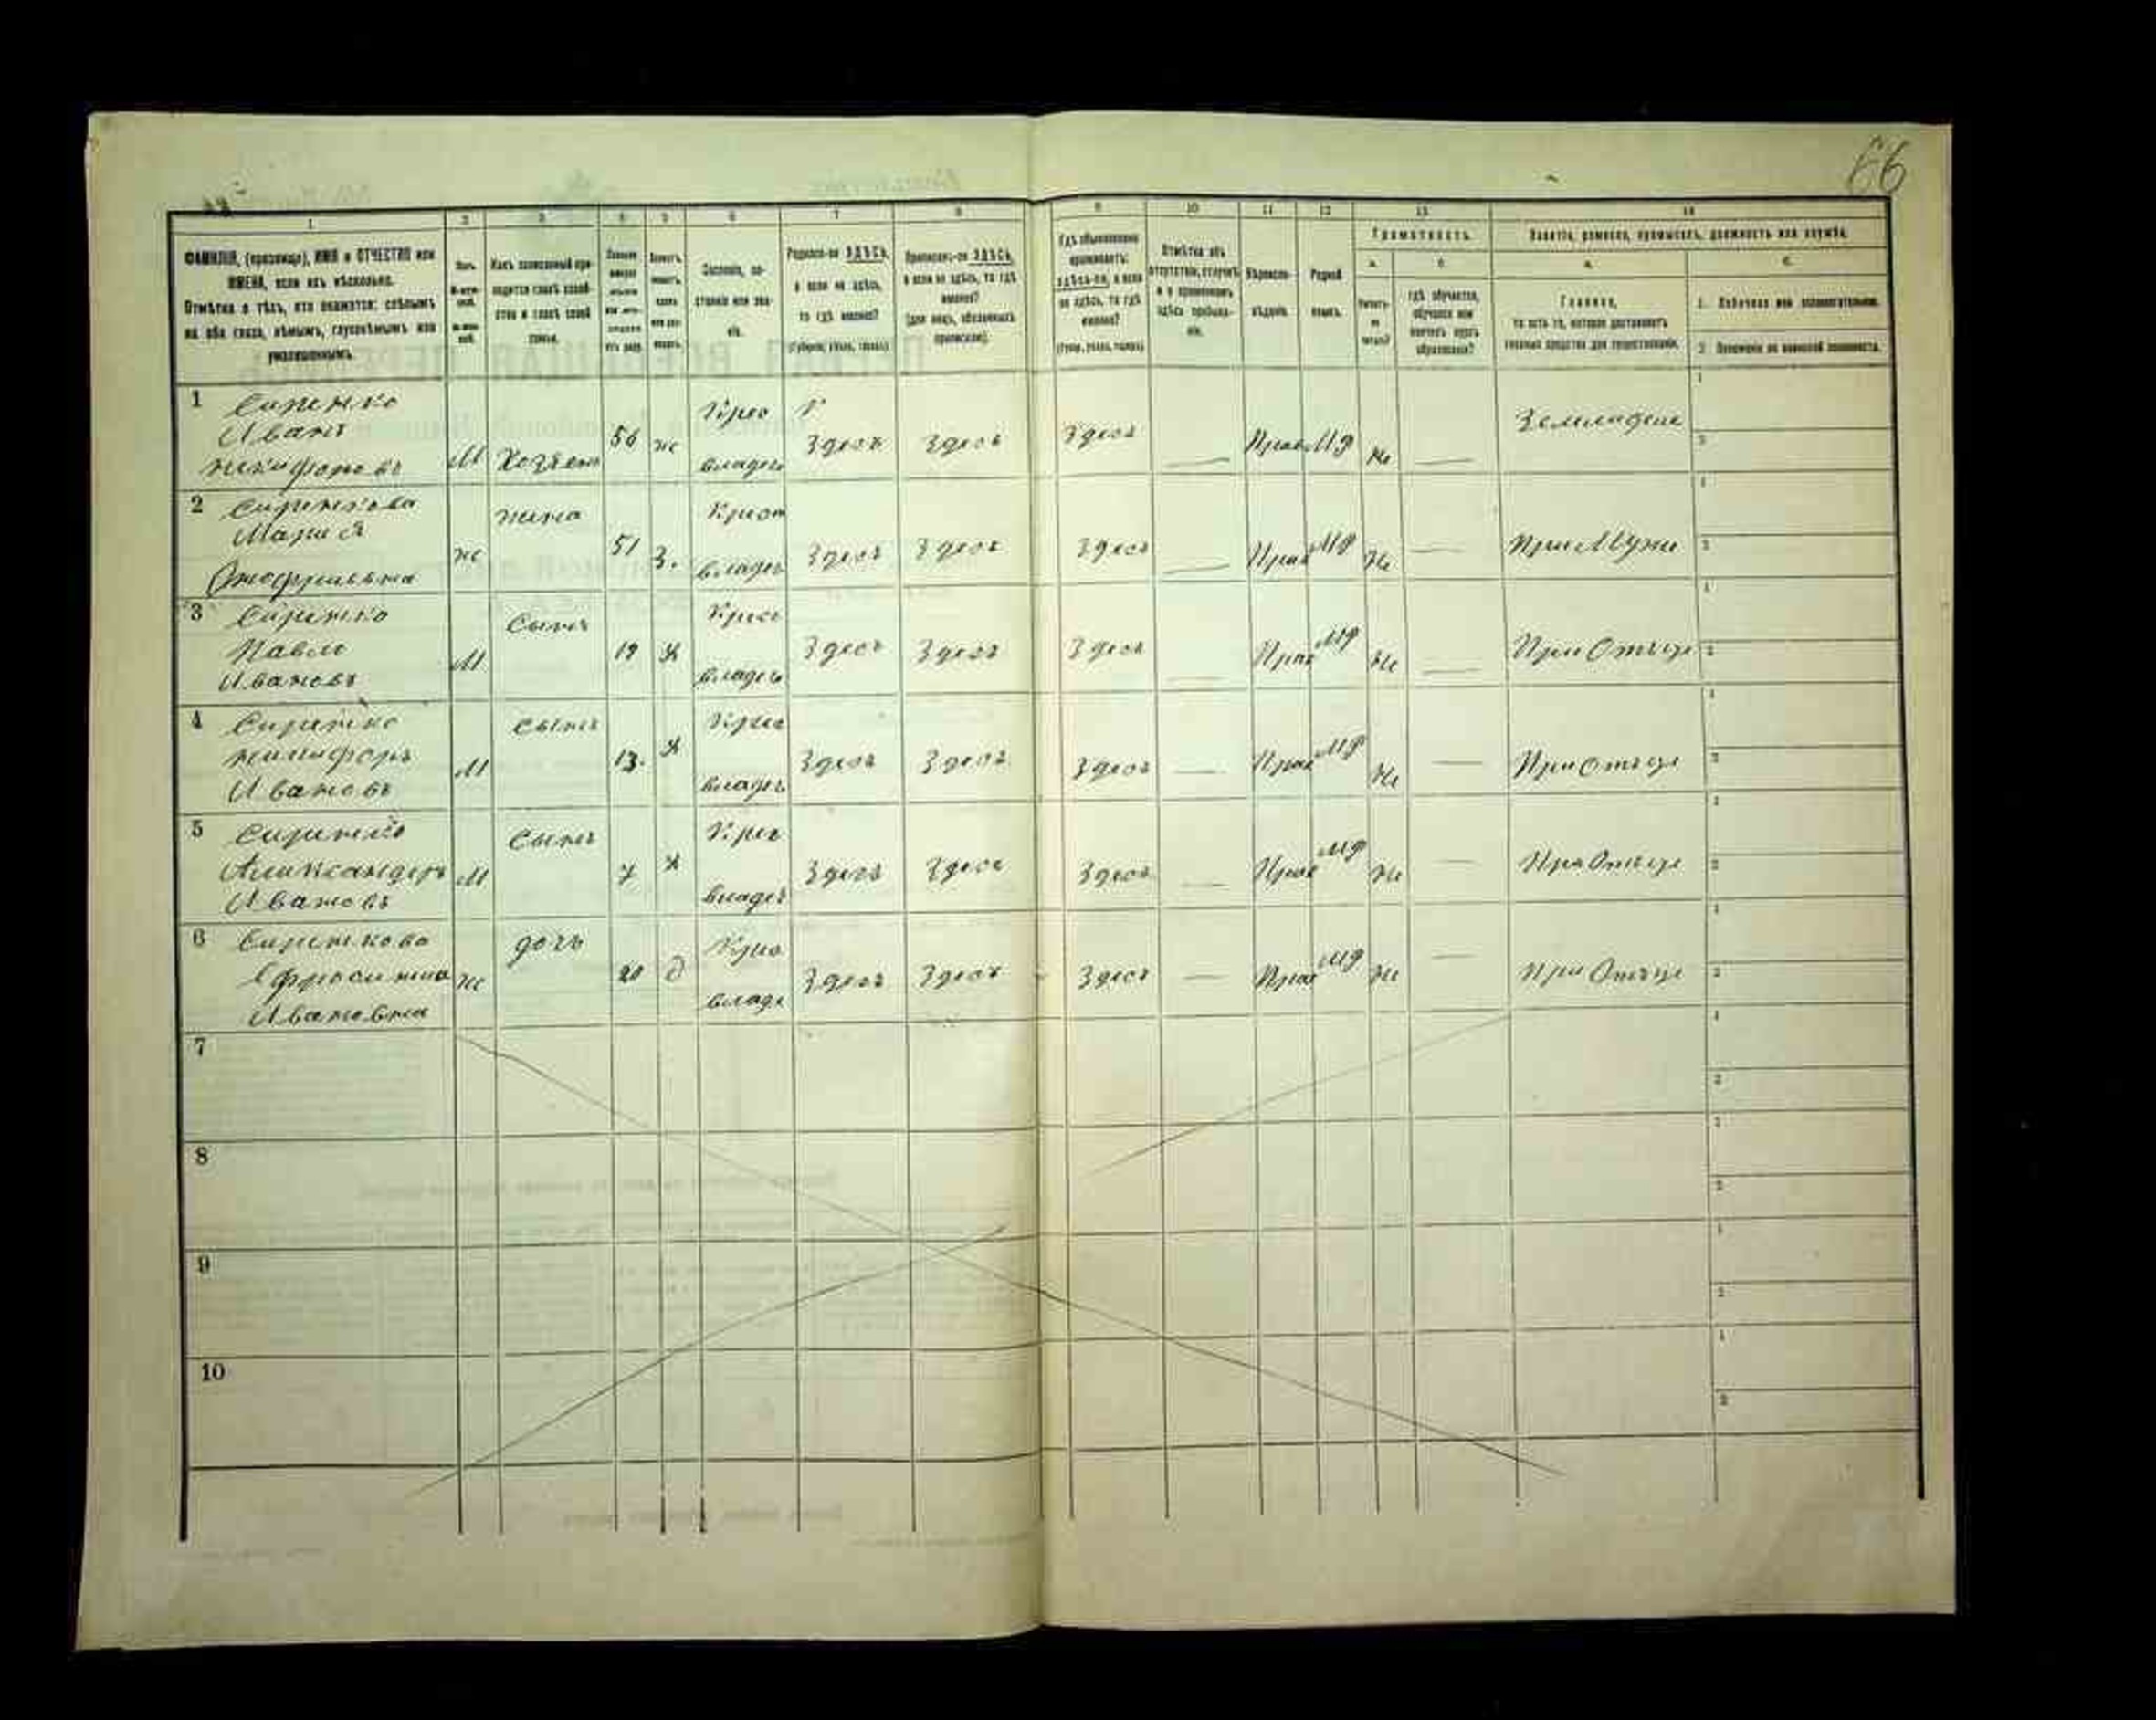 66
1 2 3 4 5 6 7 8 9 10 11 12 13 14
ФАМИЛІЯ, (прозвище), ИМЯ и ОТЧЕСТВО или
ИМЕНА, если ихъ нѣсколько.
Отмѣтка о тѣхъ, кто окажется: слѣпымъ
на оба глаза, нѣмымъ, глухонѣмымъ или
умалишеннымъ.
Полъ.
Какъ записанный при-
ходится главѣ хозяй-
ства и главѣ своей
семьи.
Сословіе, со-
стояніе или зва-
ніе.
Родился-ли ЗДѢСЬ,
а если не здѣсь,
то гдѣ именно?
(Губернія, уѣздъ, городъ)
Приписанъ-ли ЗДѢСЬ,
а если не здѣсь, то гдѣ
именно?
(для лицъ, обязанныхъ
припискою).
Гдѣ обыкновенно
проживаетъ:
здѣсь-ли, а если
не здѣсь, то гдѣ
именно?
(Губер., уѣздъ, городъ)
Отмѣтка объ
отсутствіи, отлучкѣ
и о временномъ
здѣсь пребыва-
ніи.
Вѣроиспо-
вѣданіе.
Родной
языкъ.
Грамотность.
а. б.
Умѣетъ-
ли
читать?
гдѣ обучается,
обучался или
кончилъ курсъ
образованія?
Занятіе, ремесло, промыселъ, должность или служба.
а. б.
Главное,
то есть то, которое доставляетъ
главныя средства для существованія.
1. Побочное или вспомогательное.
2. Положеніе по воинской повинности.
1 Сиренко
Иванъ
Никифоровъ М Хозяинъ 56 ж Крес владел Здесь Здесь Здесь — Прав МР Не — Земледел
2 Сиренкова
Мария
Онофриевна ж жена 51 З. Крест владел Здесь Здесь Здесь — Прав МР Не — При Муже
3 Сиренко
Павло
Ивановъ М Сынъ 19 Х Крес владел Здесь Здесь Здесь — Прав МР Не — При Отъце
4 Сиренко
Никифоръ
Ивановъ М Сынъ 13. Х Крес владел Здесь Здесь Здесь — Прав МР Не — При Отъце
5 Сиренко
Александеръ
Ивановъ М Сынъ 7 Х Крес владел Здесь Здесь Здесь — Прав МР Не — При Отъце
6 Сиренкова
Ефросиниа
Ивановна ж дочь 20 д Крес владе Здесь Здесь Здесь — Прав МР Не — При Отъце
7
8
9
10